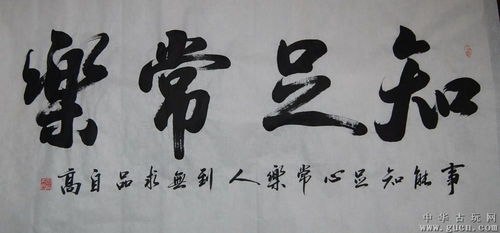 知足常樂
事能知足心常樂人到無求品自高
中华古玩网
www.gucn.com